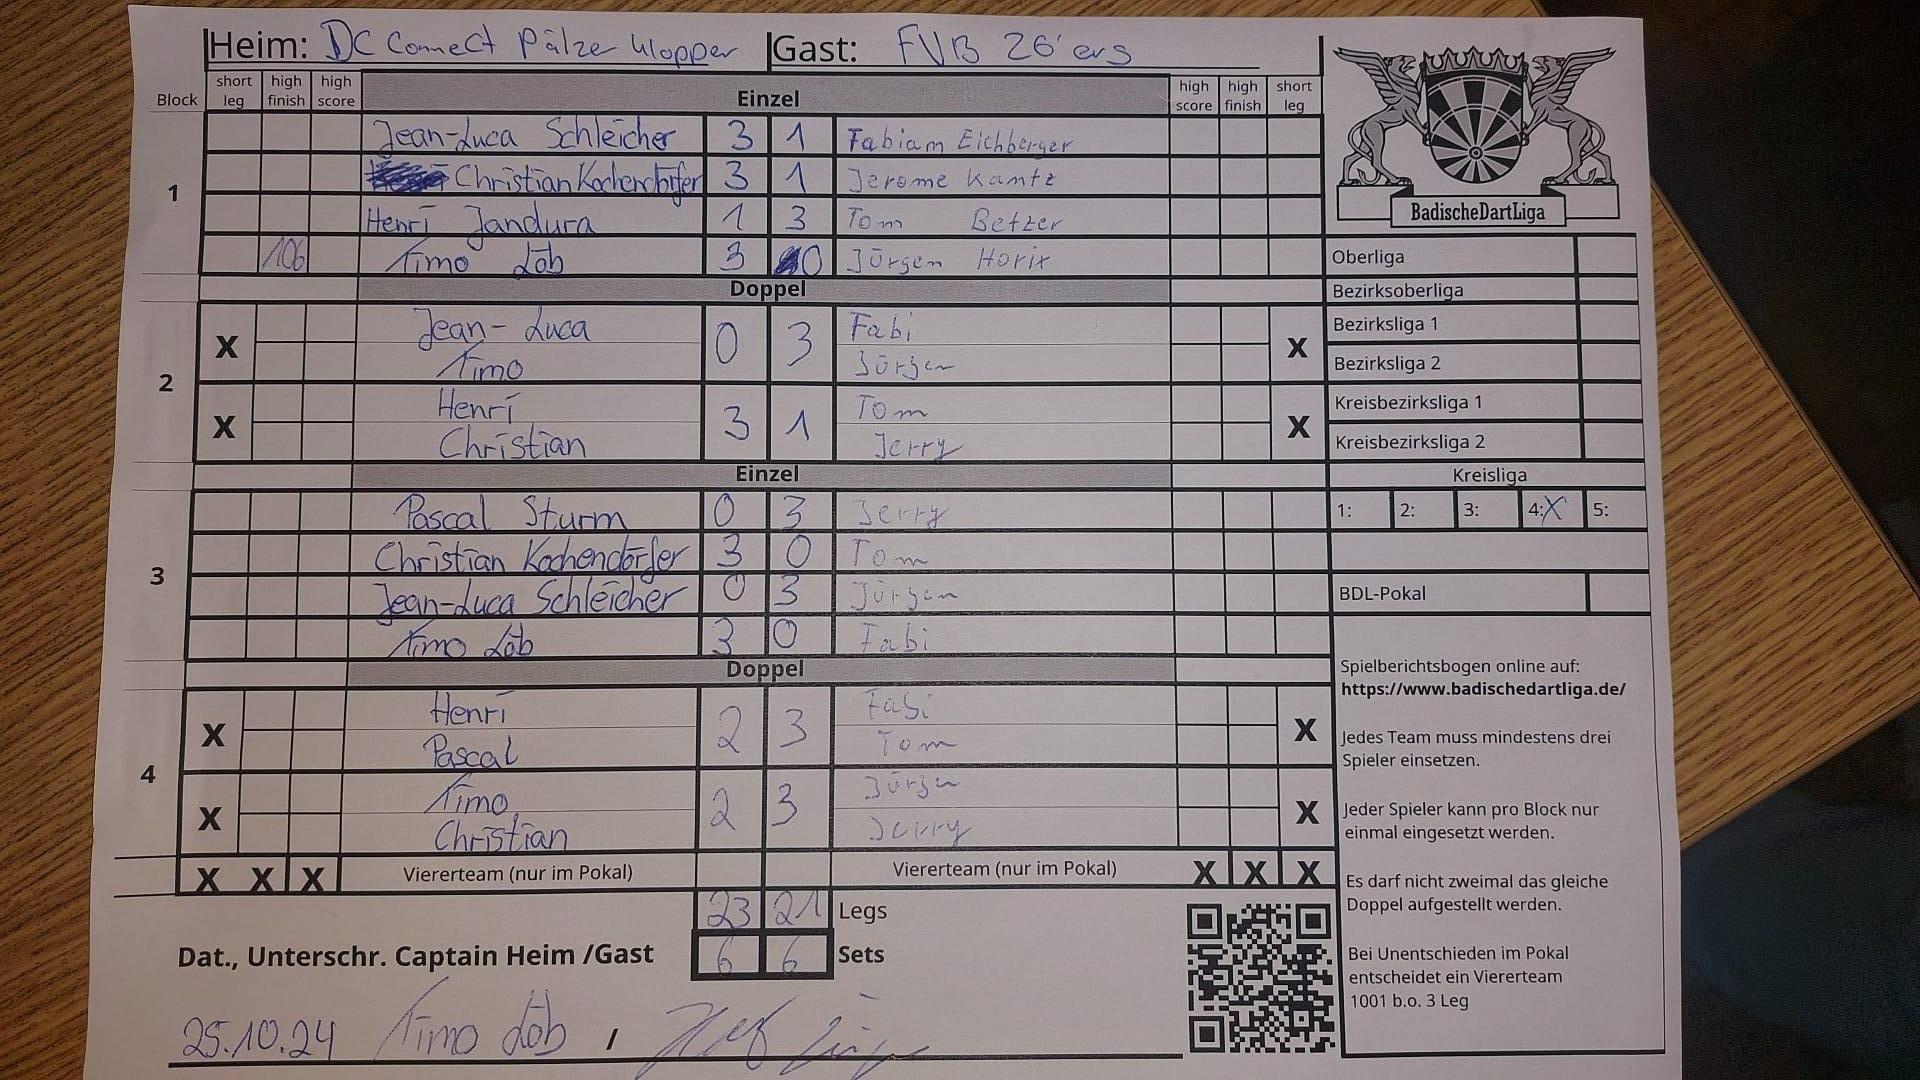 Heim: DC Connect Pälzer Klopper Gast: FVB 26'ers
Block short leg high finish high score Einzel high score high finish short leg
1
Jean-Luca Schleicher 3 1 Fabian Eichberger
Christian Kochendörfer 3 1 Jerome Kantz
Henri Jandura 1 3 Tom Betzer
106 Timo Löb 3 0 Jürgen Horix
Doppel
2
X Jean-Luca 0 3 Fabi X
Timo Jürgen
X Henri 3 1 Tom X
Christian Jerry
Einzel
3
Pascal Sturm 0 3 Jerry
Christian Kochendörfer 3 0 Tom
Jean-Luca Schleicher 0 3 Jürgen
Timo Löb 3 0 Fabi
Doppel
4
X Henri 2 3 Fabi X
Pascal Tom
X Timo 2 3 Jürgen X
Christian Jerry
X X X Viererteam (nur im Pokal) Viererteam (nur im Pokal) X X X
23 21 Legs
Dat., Unterschr. Captain Heim /Gast 6 6 Sets
25.10.24 Timo Löb /
BadischeDartLiga
Oberliga
Bezirksoberliga
Bezirksliga 1
Bezirksliga 2
Kreisbezirksliga 1
Kreisbezirksliga 2
Kreisliga
1: 2: 3: 4:X 5:
BDL-Pokal
Spielberichtsbogen online auf:
https://www.badischedartliga.de/
Jedes Team muss mindestens drei
Spieler einsetzen.
Jeder Spieler kann pro Block nur
einmal eingesetzt werden.
Es darf nicht zweimal das gleiche
Doppel aufgestellt werden.
Bei Unentschieden im Pokal
entscheidet ein Viererteam
1001 b.o. 3 Leg